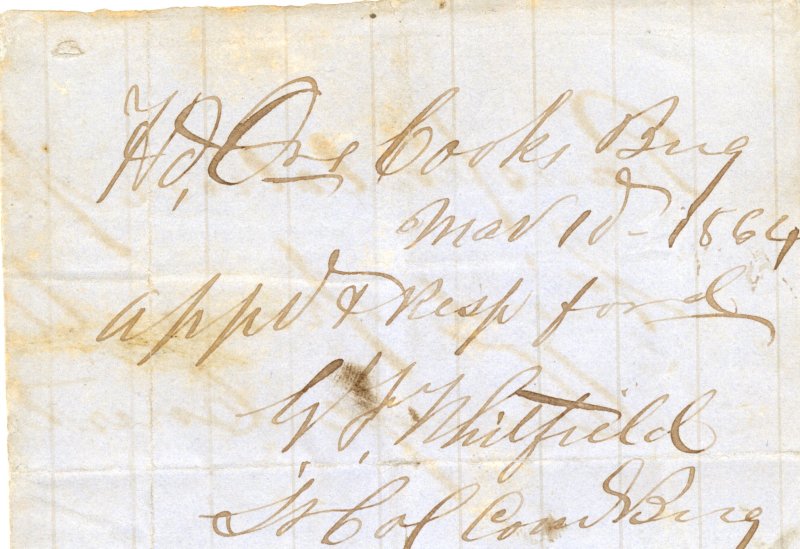 Hd, Qrs Cooks Brig
Mar 1st 1864
appd & resp ford
G F Whitfield
Lt Col Comd Brig